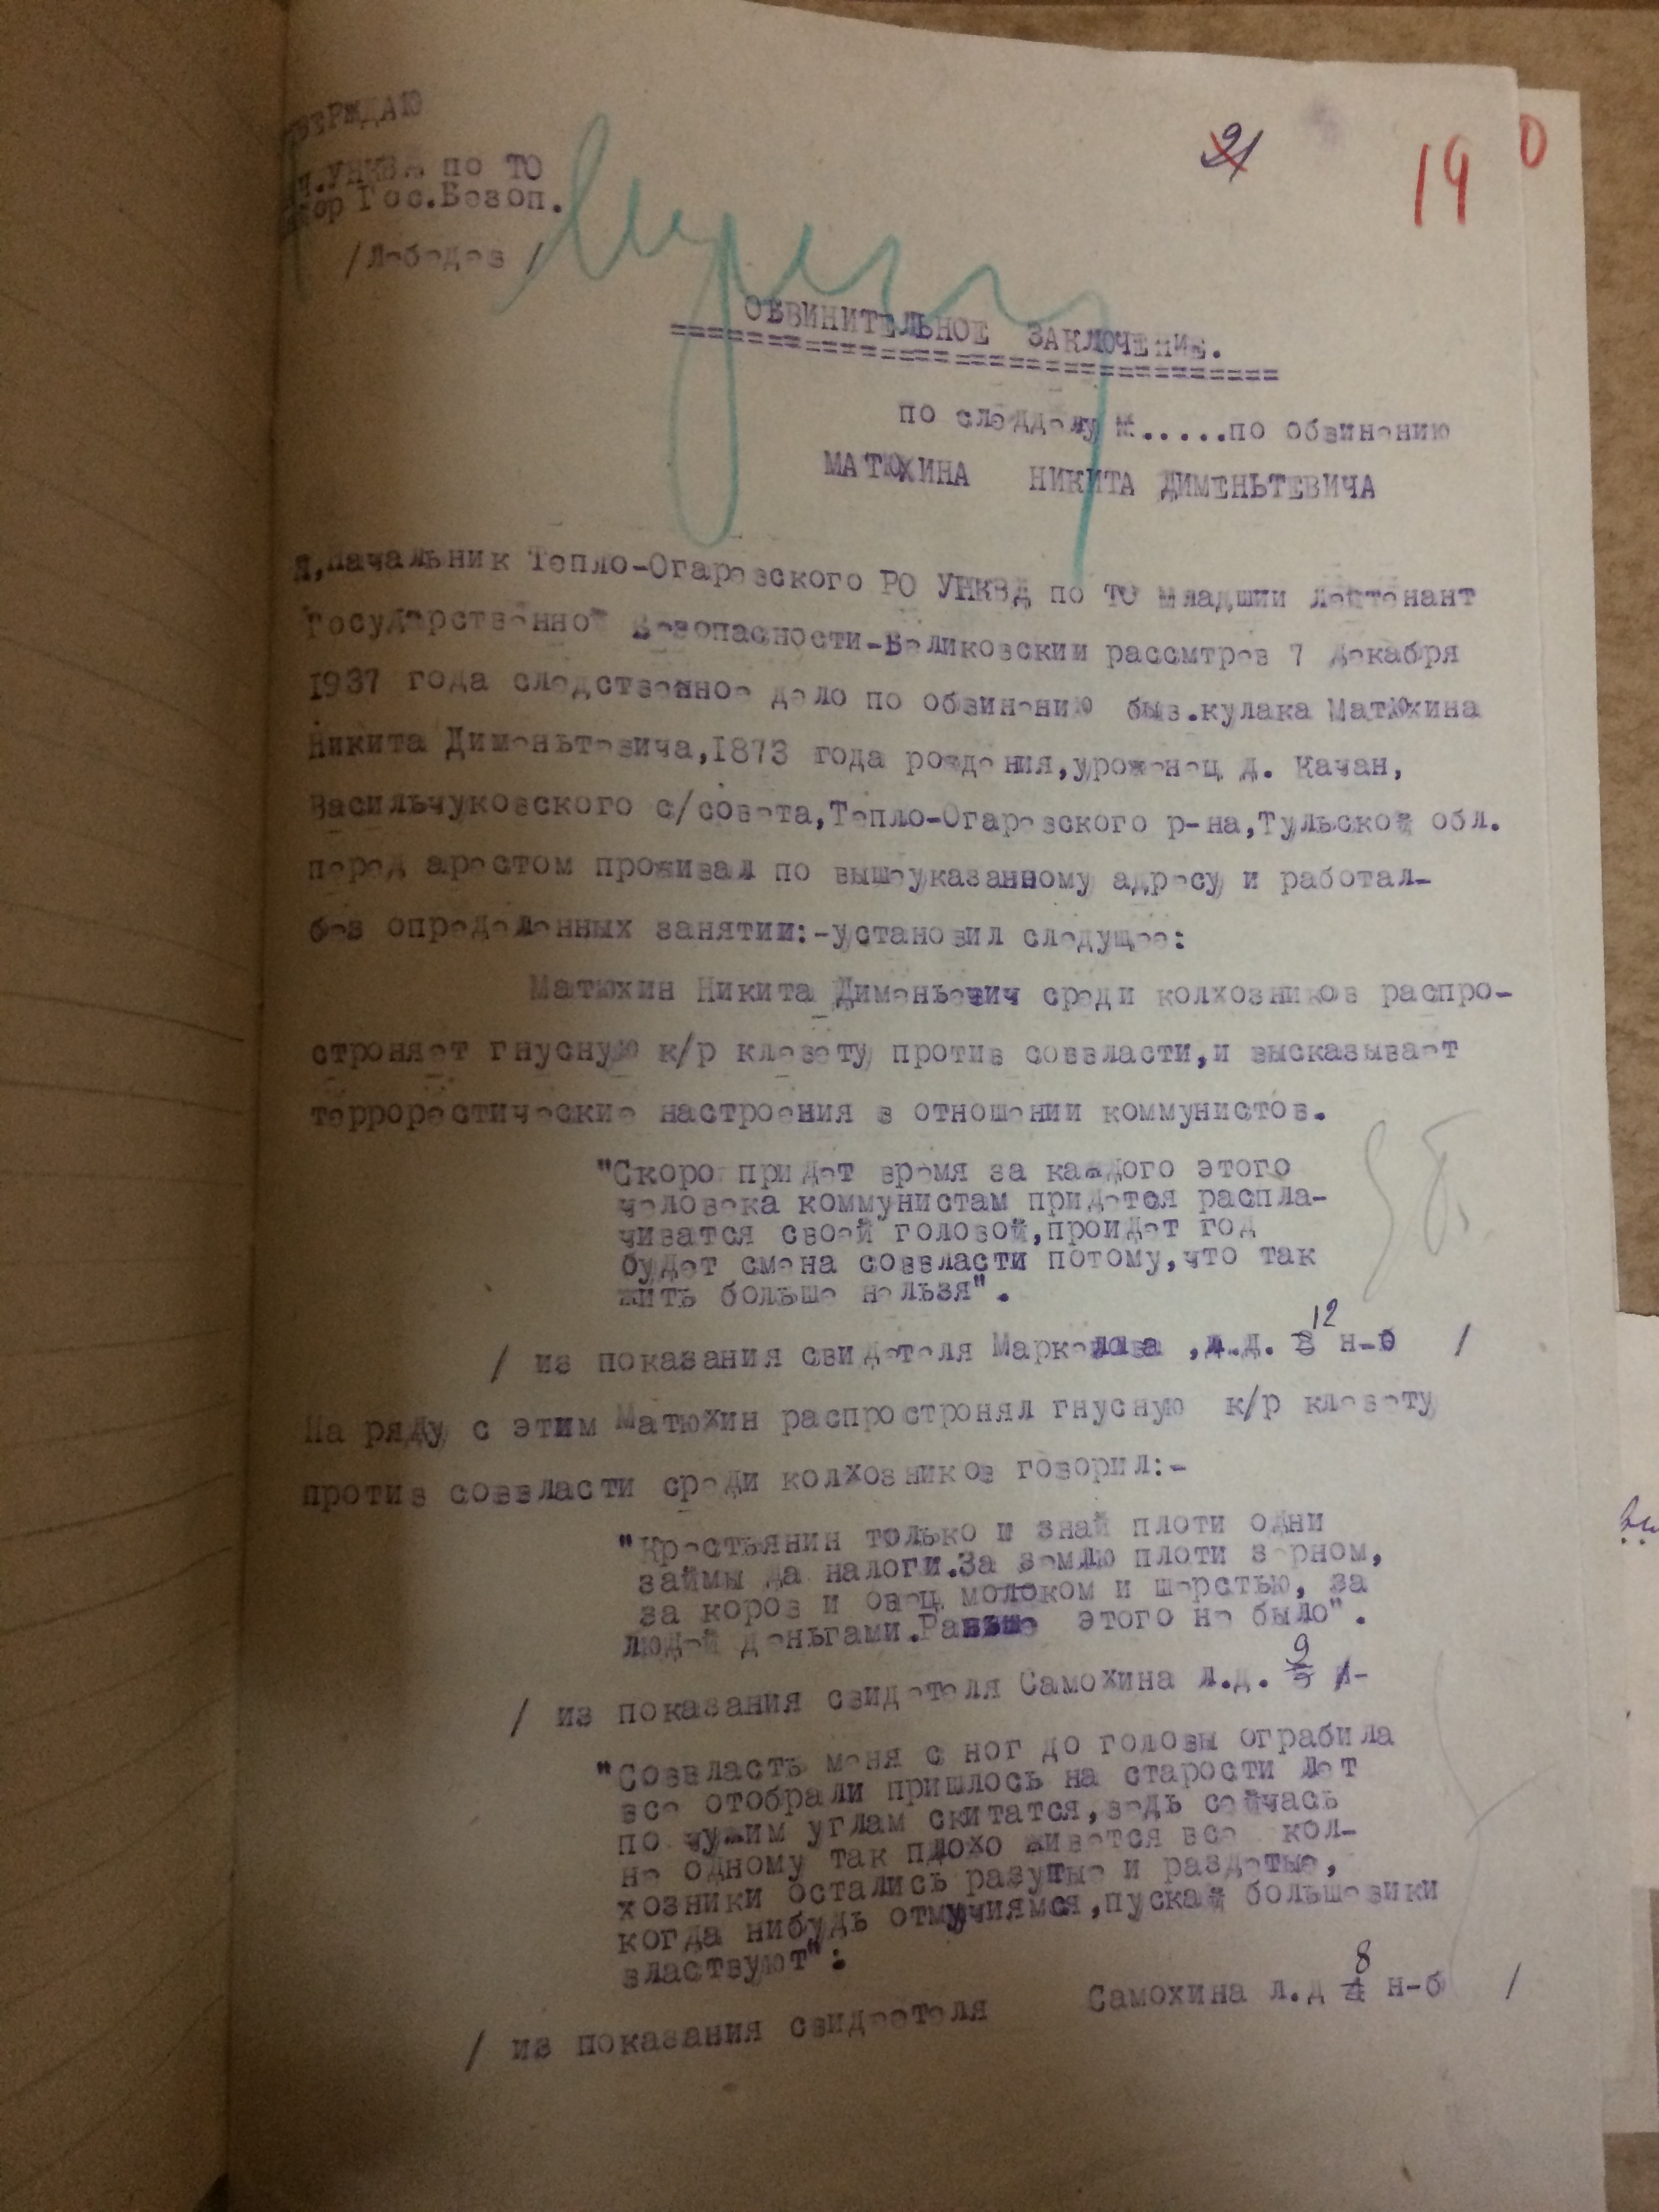 ТВЕРЖДАЮ
21
19 0
ч.УНКВД по ТО
йор Гос.Безоп.
/Лебедев /
ОБВИНИТЕЛЬНОЕ ЗАКЛЮЧЕНИЕ.
по следделу №.....по обвинению
МАТЮХИНА НИКИТА ДИМЕНЬТЕВИЧА
Я,Начальник Тепло-Огаревского РО УНКВД по ТО младшии лейтенант
Государственной Безопасности-Великовскии рассмтрев 7 декабря
1937 года следственное дело по обвинению быв.кулака Матюхина
Никита Дименьтевича,1873 года рождения,уроженец д. Качан,
Васильчуковского с/совета,Тепло-Огаревского р-на,Тульской обл.
перед арестом проживал по вышеуказанному адресу и работал-
без определенных занятии:-установил следущее:
Матюхин Никита Дименьевич среди колхозников распро-
строняет гнусную к/р клевету против соввласти,и высказывает
террорестические настроения в отношении коммунистов.
"Скоро придет время за каждого этого
человека коммунистам придется распла-
чиватся своей головой,проидет год
будет смена соввласти потому,что так
жить больше нельзя".
/ из показания свидетеля Маркелова ,л.д. 8 12 н-б /
На ряду с этим Матюхин распростронял гнусную к/р клевету
против соввласти среди колхозников говорил:-
"Крестьянин только и знай плоти одни
займы да налоги.За землю плоти зерном,
за коров и овец молоком и шерстью, за
людей деньгами.Раньше этого не было".
/ из показания свидетеля Самохина л.д. 5 9 /-
"Соввласть меня с ног до головы ограбила
все отобрали пришлось на старости лет
по чужим углам скитатся,ведь сейчась
не одному так плохо живется все кол-
хозники остались разутые и раздетые,
когда нибудь отмучиямся,пускай большевики
властвуют":
/ из показания свидеетеля Самохина л.д 4 8 н-б /